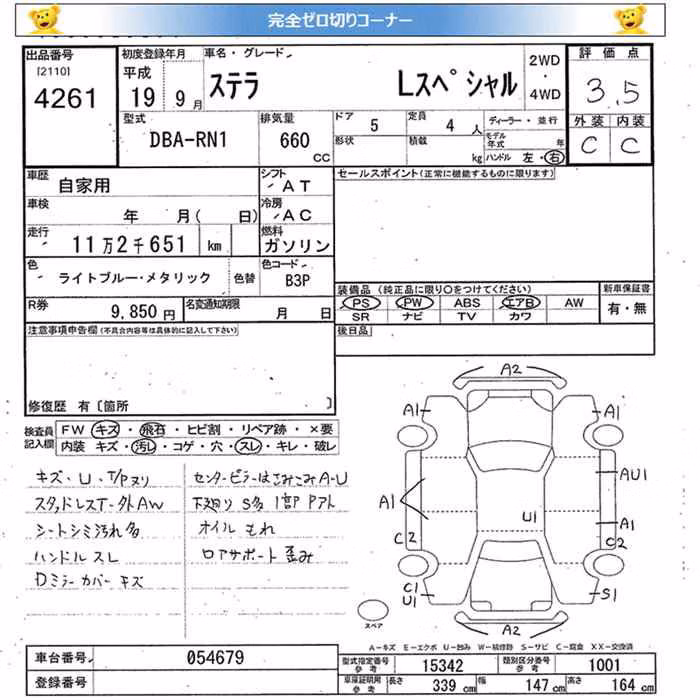 完全ゼロ切りコーナー
出品番号 初度登録年月 車名・グレード 2WD・4WD 評価点
[2110] 平成
4261 19 9月 ステラ Lスペシャル 3.5
型式 排気量 ドア 5 定員 4人 ディーラー・並行 外装 内装
DBA-RN1 660 CC 形状 積載 kg モデル年式 年 ハンドル 左・右 C C
車歴 自家用 シフト AT セールスポイント(正常に機能するものに限ります)
車検 年 月( 日) 冷房 AC
走行 11万2千651 km 燃料 ガソリン
色 ライトブルー・メタリック 色替 色コード B3P 装備品(純正品に限り○をつけてください) 新車保証書
PS PW ABS エアB AW 有・無
R券 9,850円 名変通知期限 月 日 SR ナビ TV カワ
注意事項申告欄(不具合内容等は具体的に記入して下さい) 後日品
修復歴 有〔箇所 〕
検査員記入欄 FW キズ・飛石・ヒビ割・リペア跡・×要
内装 キズ・汚レ・コゲ・穴・スレ・キレ・破レ
キズ・U・T/Pヌリ センターピラーはさみこみA-U
スタッドレスT-外AW 下廻り S多 1部Pアト
シートシミ汚れ多 オイルもれ
ハンドルスレ ロアサポート歪み
Dミラーカバーキズ
A2
A1 A1
AU1
A1 U1 A1
C2 C2
C1
U1 S1
スペア A2
A-キズ E-エクボ U-凹み W-補修跡 S-サビ C-腐食 XX-交換済
車台番号 054679 型式指定番号 参考 15342 類別区分番号 参考 1001
登録番号 車庫証明用 参考 長さ 339 cm 幅 147 cm 高さ 164 cm